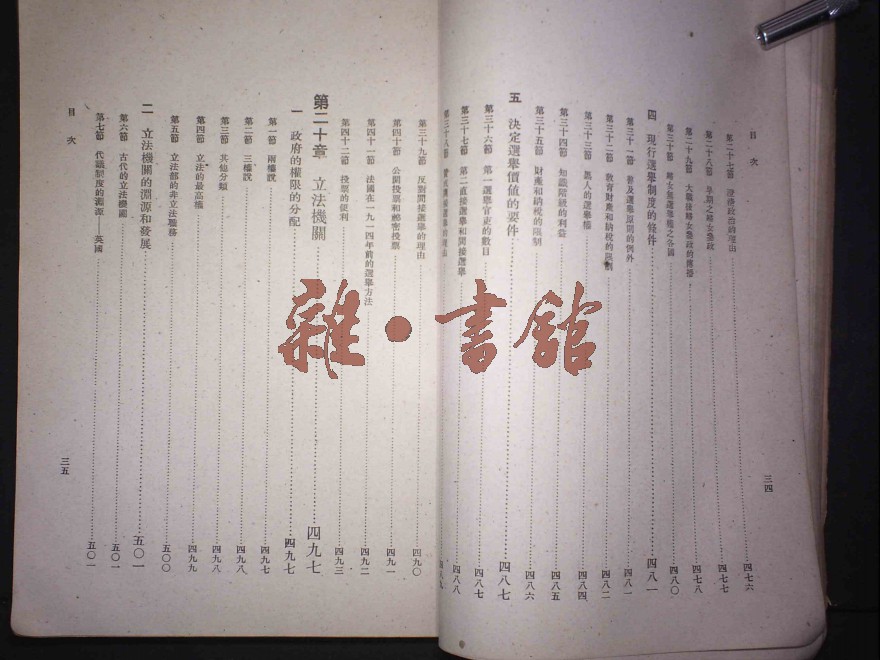 目次
第二十七節 澄清政治的理由 四七六
第二十八節 早期之婦女參政 四七七
第二十九節 大戰後婦女參政的傳播 四七八
第三十節 婦女無選舉權之各國 四八〇
四 現行選舉制度的條件 四八一
第三十一節 普及選舉原則的例外 四八一
第三十二節 教育財產和納稅的限制 四八二
第三十三節 萬人的選舉權 四八四
第三十四節 知識階級的利益 四八五
第三十五節 財產和納稅的限制 四八六
五 決定選舉價値的要件 四八七
第三十六節 第一選舉官吏的數目 四八七
第三十七節 第二直接選舉和間接選舉 四八八
第三十八節 贊成間接選舉的理由 四八九
三四
第三十九節 反對間接選舉的理由 四九〇
第四十節 公開投票和祕密投票 四九一
第四十一節 法國在一九一四年前的選舉方法 四九二
第四十二節 投票的便利 四九三
第二十章 立法機關 四九七
一 政府的權限的分配 四九七
第一節 兩權說 四九七
第二節 三權說 四九八
第三節 其他分類 四九八
第四節 立法的最高權 四九九
第五節 立法部的非立法職務 五〇〇
二 立法機關的淵源和發展 五〇一
第六節 古代的立法機關 五〇一
第七節 代議制度的淵源——英國 五〇一
目次
三五
雜·書館